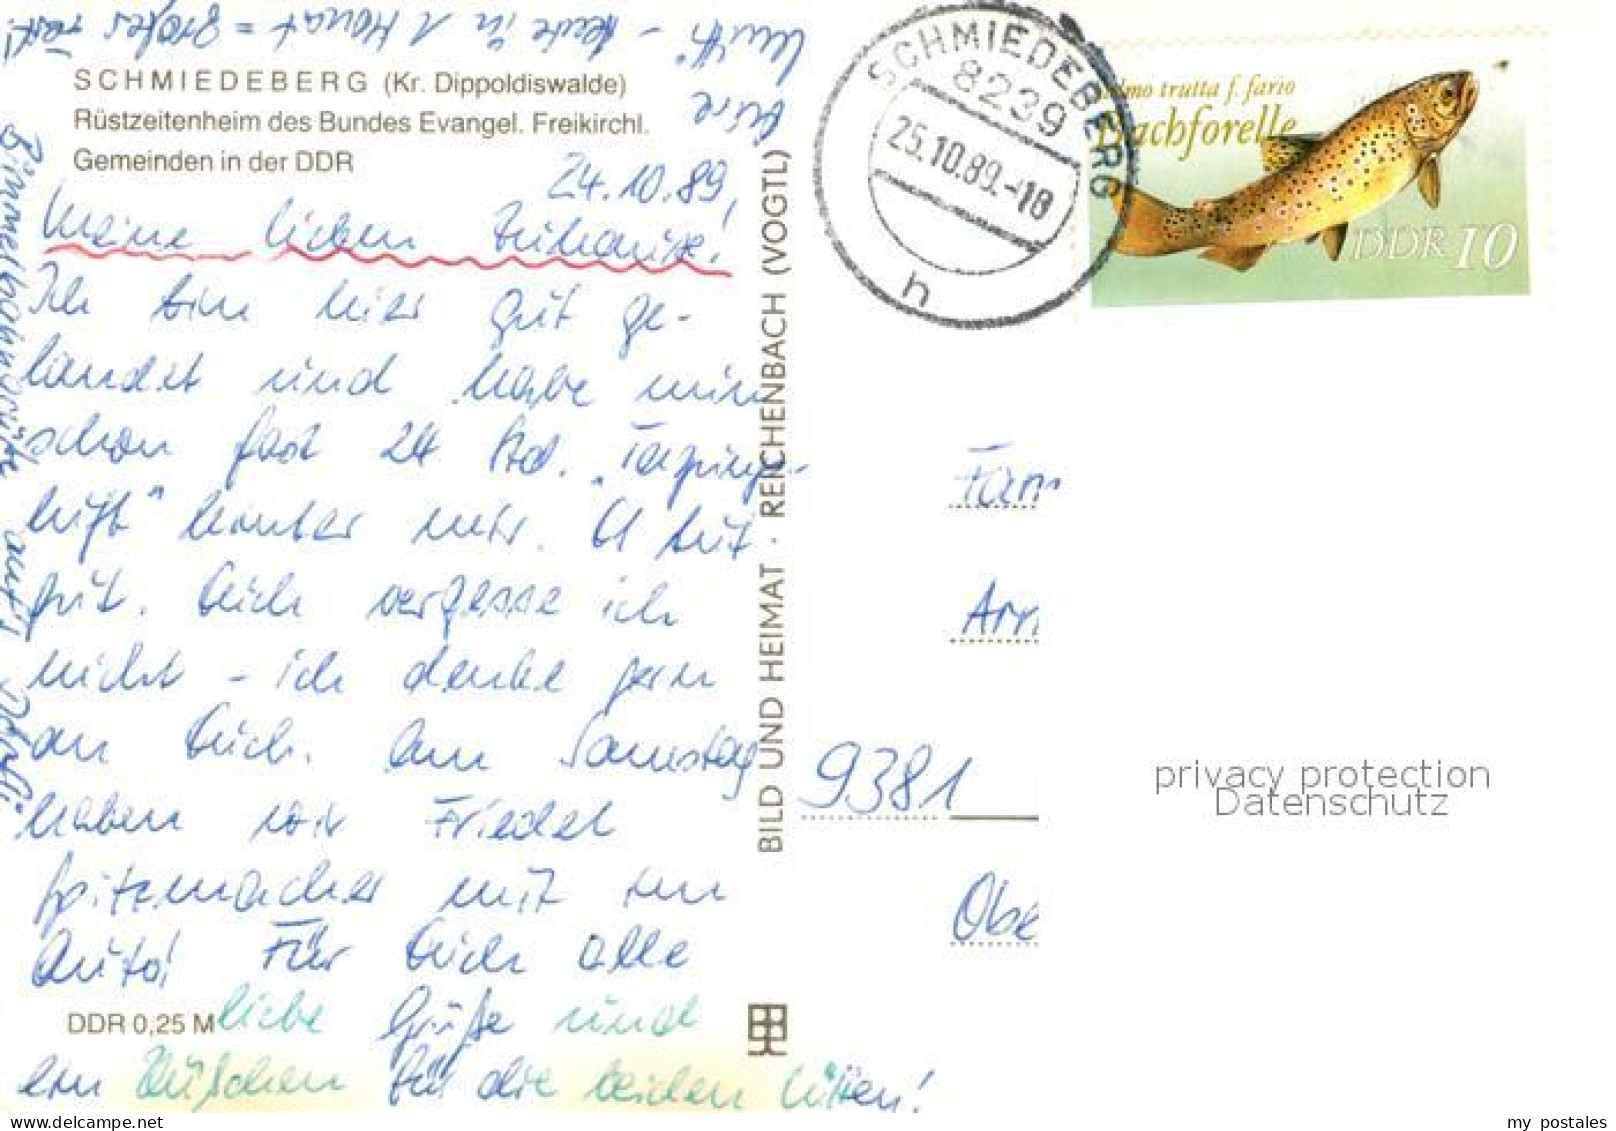 SCHMIEDEBERG (Kr. Dippoldiswalde)
Rüstzeitenheim des Bundes Evangel. Freikirchl.
Gemeinden in der DDR
24.10.89,
Meine lieben
Ich bin hier gut ge-
landet und habe nun
schon fast 24 Std.
luft" hinter mir. Es tut
gut. Euch vergesse ich
nicht - ich denke gern
an Euch. Am Samstag
haben wir Friedel
mit em
Auto! Für Euch alle
liebe Grüße und
ein Küßchen für die beiden
DDR 0,25 M
Eure
- heute in 1 Monat = großer Tag!
BILD UND HEIMAT · REICHENBACH (VOGTL)
SCHMIEDEBERG
8239
25.10.89.-18
h
Salmo trutta f. fario
Bachforelle
DDR 10
Fam
Arn
9381
Obe
privacy protection
Datenschutz
my postales